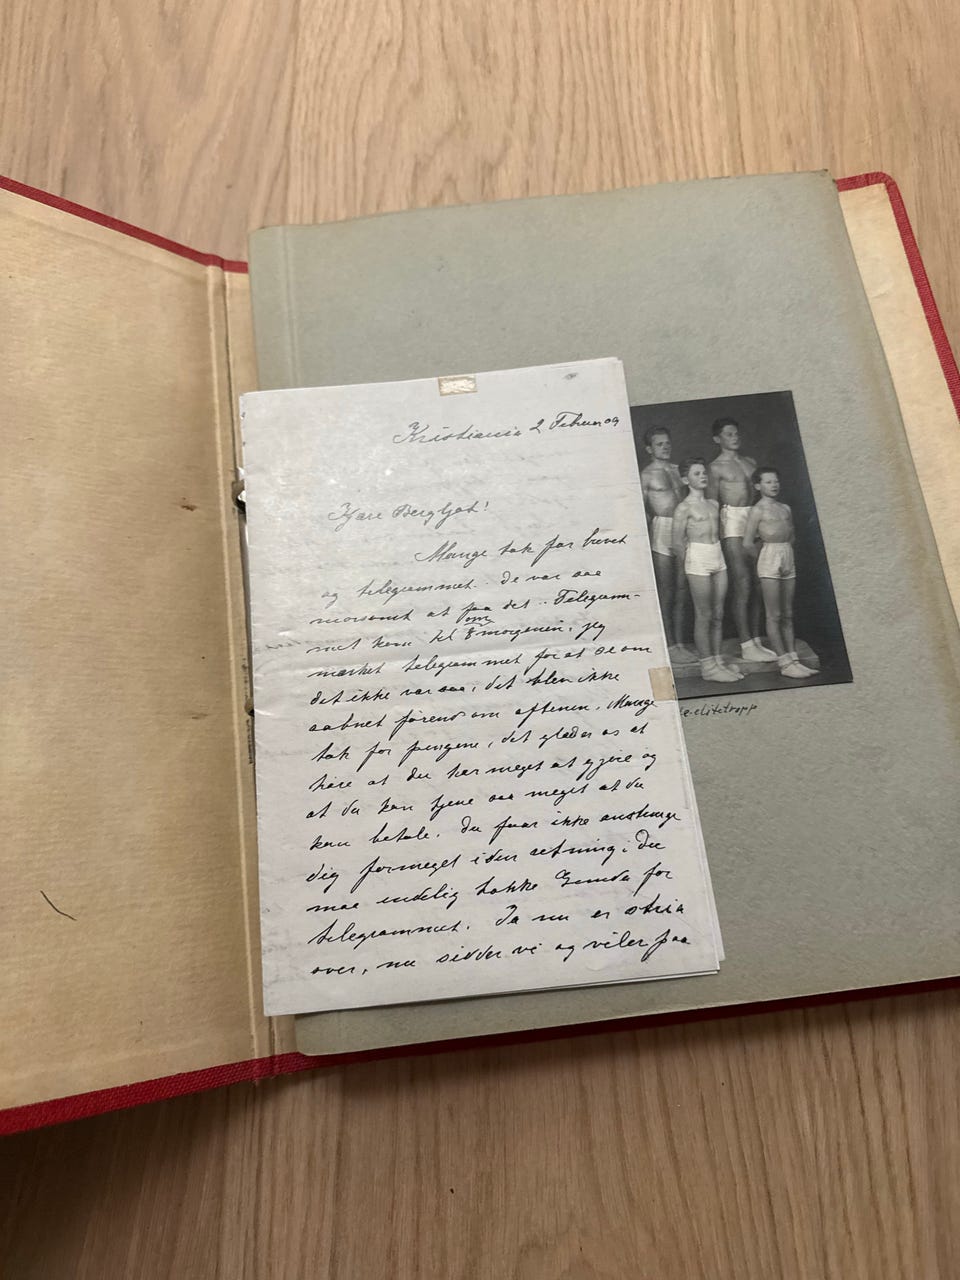 Kristiania 2 Februar 09
Kjære Bergljot!
Mange tak for brevet
og telegrammet. De var saa
morsomt at faa det.. Telegram-
met kom kl 8 om morgenen, jeg
mærket telegrammet for at se om
det ikke var saa, det blev ikke
aabnet førend om aftenen. Mange
tak for pengene, det glæder os at
høre at du har meget at gjøre og
at du kan tjene saa meget at du
kan betale. Du faar ikke anstrenge
dig formeget i den retning; Du
maa endelig takke Gunda for
telegrammet. Ja nu er
over, nu sidder vi og viler paa
elitetropp